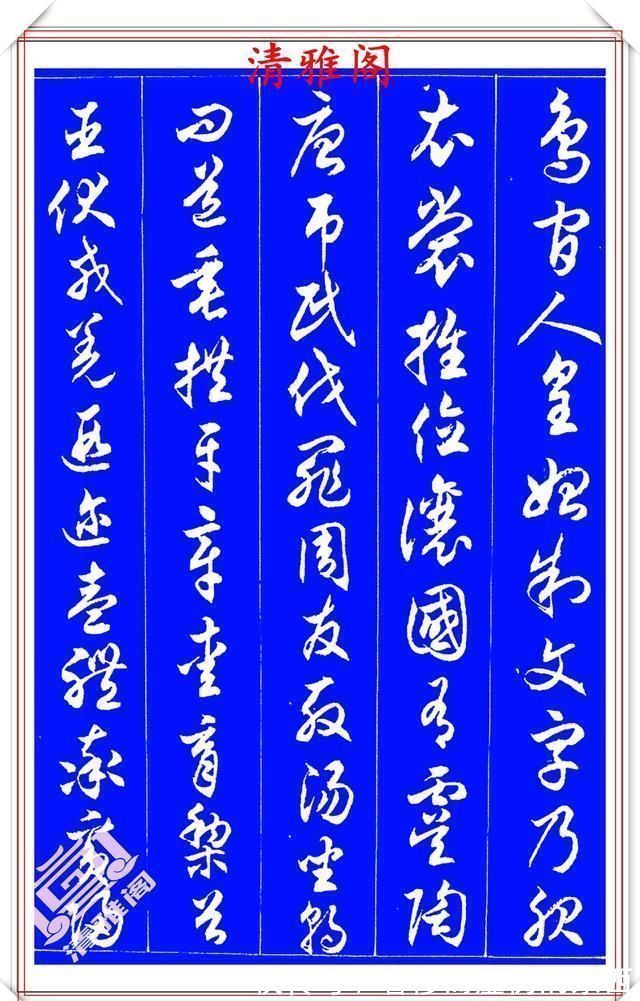 清雅阁
鳥官人皇始制文字乃服
衣裳推位讓國有虞陶
唐吊民伐罪周發殷湯坐朝
問道垂拱平章愛育黎首
臣伏戎羌遐邇壹體率賓歸
清雅阁